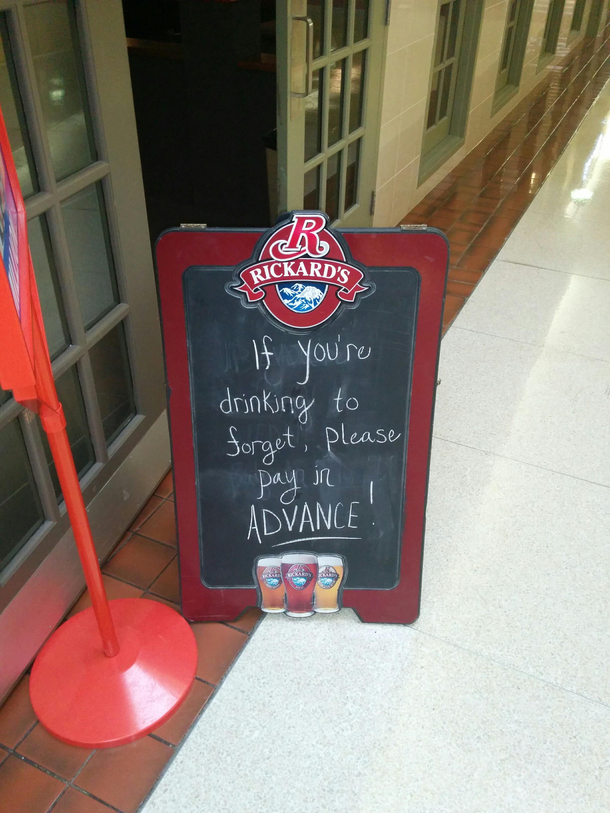 R
RICKARD'S
If you're
drinking to
forget, please
pay in
ADVANCE!
RICKARD'S
RICKARD'S
RICKARD'S